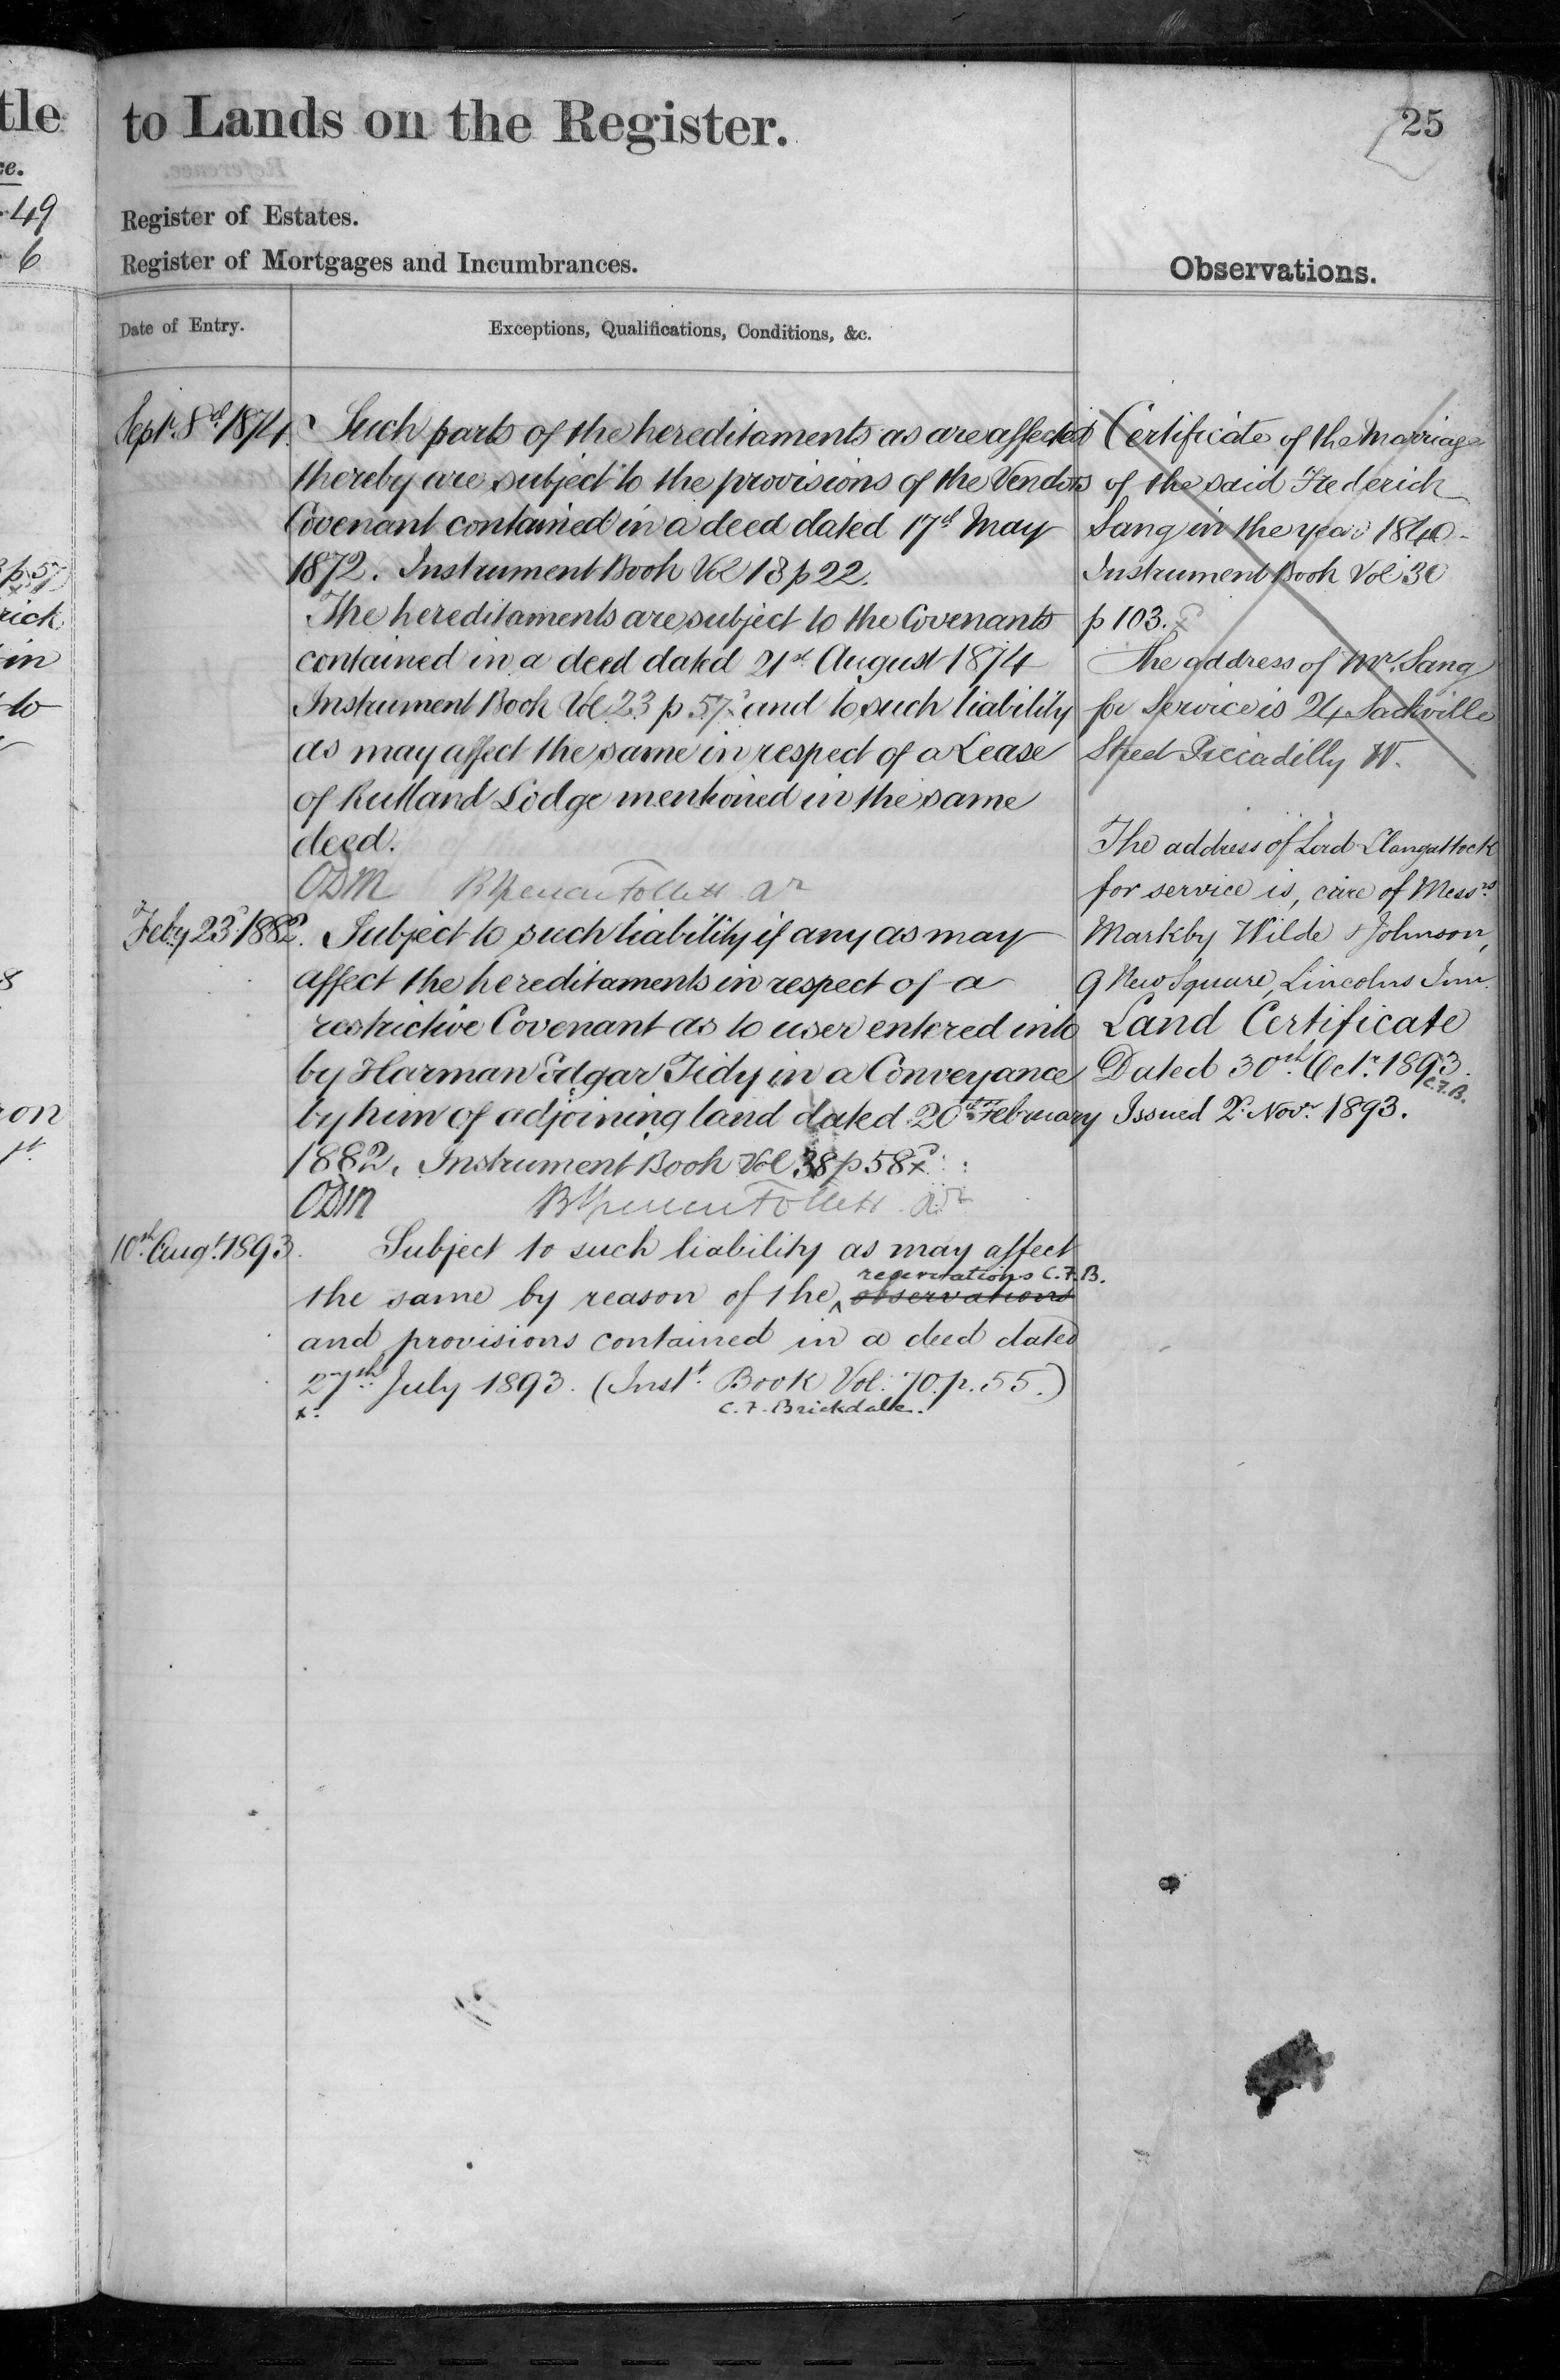 tle
to Lands on the Register.
25
ce.
49
6
Register of Estates.
Register of Mortgages and Incumbrances.
Observations.
Date of Entry.
Exceptions, Qualifications, Conditions, &c.
Sept. 8th 1874.
Such parts of the hereditaments as are affected
thereby are subject to the provisions of the Vendors
Covenant contained in a deed dated 17th May
1872. Instrument Book Vol 18 p 22.
The hereditaments are subject to the Covenants
contained in a deed dated 21st August 1874
Instrument Book Vol 23 p 57 and to such liability
as may affect the same in respect of a Lease
of Rutland Lodge mentioned in the same
deed.
ODM Follett
Feby 23d 1882.
Subject to such liability if any as may
affect the hereditaments in respect of a
restrictive Covenant as to user entered into
by Harman Edgar Tidy in a Conveyance
by him of adjoining land dated 20th February
1882. Instrument Book Vol 38 p 58
ODM Follett
10th Augt. 1893.
Subject to such liability as may affect
reservations C.F.B.
the same by reason of the observations
and provisions contained in a deed dated
27th July 1893. (Instt. Book Vol. 70. p. 55.)
C. F. Brickdale.
Certificate of the Marriage
of the said Frederick
Sang in the year 1840
Instrument Book Vol
p 103.
The address of Mr. Sang
for Service is 24 Sackville
Street Piccadilly W.
The address of Lord Llangattock
for service is, care of Messrs
Markby Wilde & Johnson,
9 New Square, Lincolns Inn.
Land Certificate
Dated 30th Octr. 1893.
C.F.B.
Issued 2d Novr. 1893.
rick
in
to
on